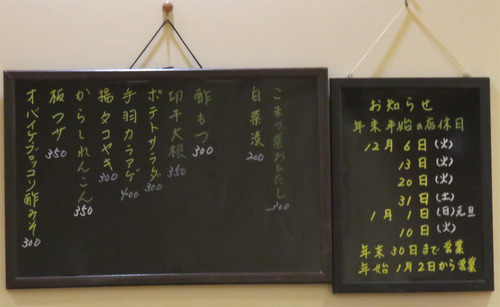 こまつ菜おひたし 300
白菜漬 200
酢もつ 300
切干大根 350
ポテトサラダ 300
手羽カラアゲ 400
揚タコヤキ 300
からしれんこん 350
板ワサ 350
オバイケブロッコリ酢みそ 300
お知らせ
年末年始の店休日
12月 6日(火)
13日(火)
20日(火)
31日(土)
1月 1日(日)元旦
10日(火)
年末30日まで営業
年始1月2日から営業